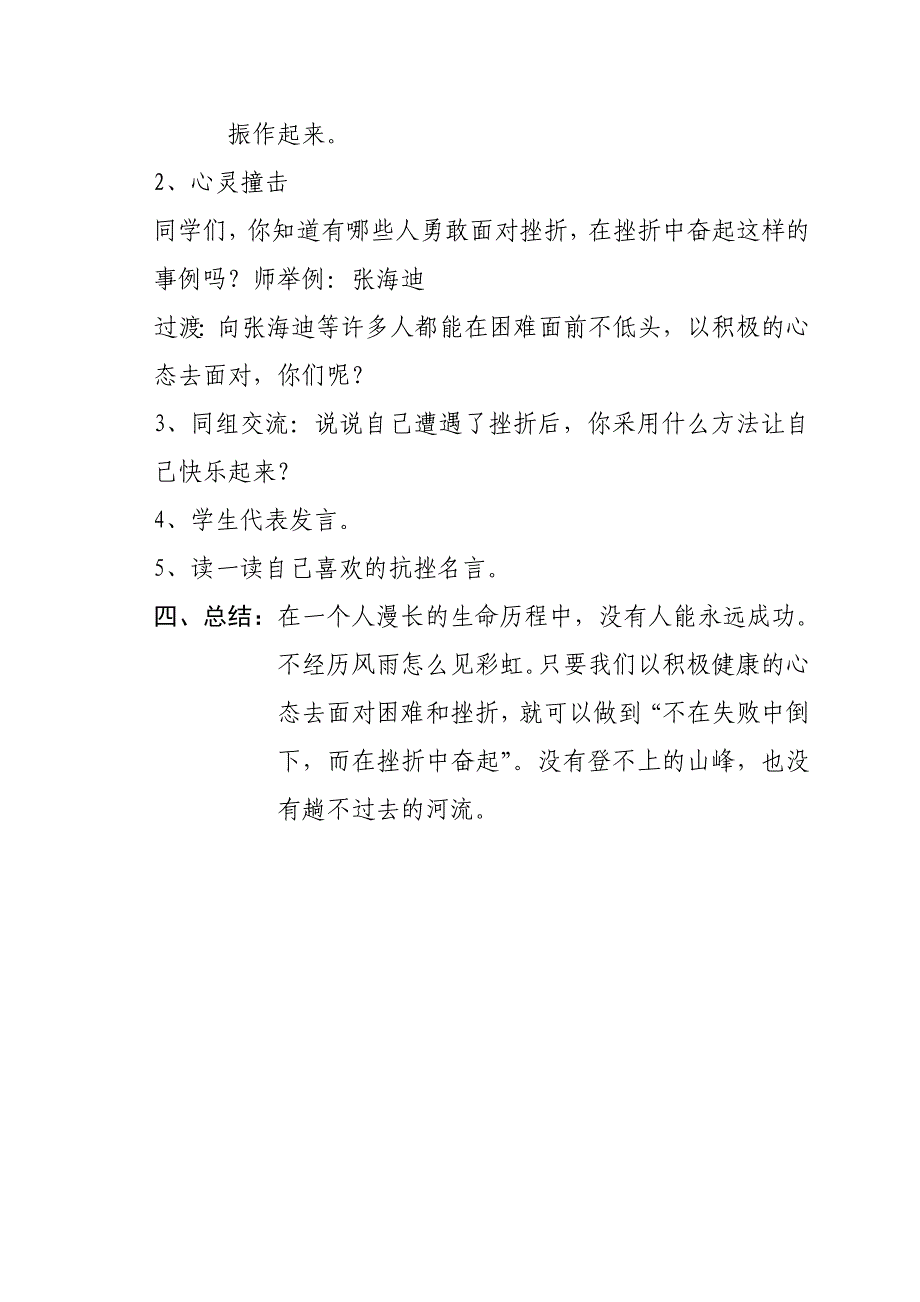 振作起来。
2、心灵撞击
同学们，你知道有哪些人勇敢面对挫折，在挫折中奋起这样的
事例吗？师举例：张海迪
过渡：向张海迪等许多人都能在困难面前不低头，以积极的心
态去面对，你们呢？
3、同组交流：说说自己遭遇了挫折后，你采用什么方法让自
己快乐起来？
4、学生代表发言。
5、读一读自己喜欢的抗挫名言。
四、总结：在一个人漫长的生命历程中，没有人能永远成功。
不经历风雨怎么见彩虹。只要我们以积极健康的心
态去面对困难和挫折，就可以做到“不在失败中倒
下，而在挫折中奋起”。没有登不上的山峰，也没
有趟不过去的河流。